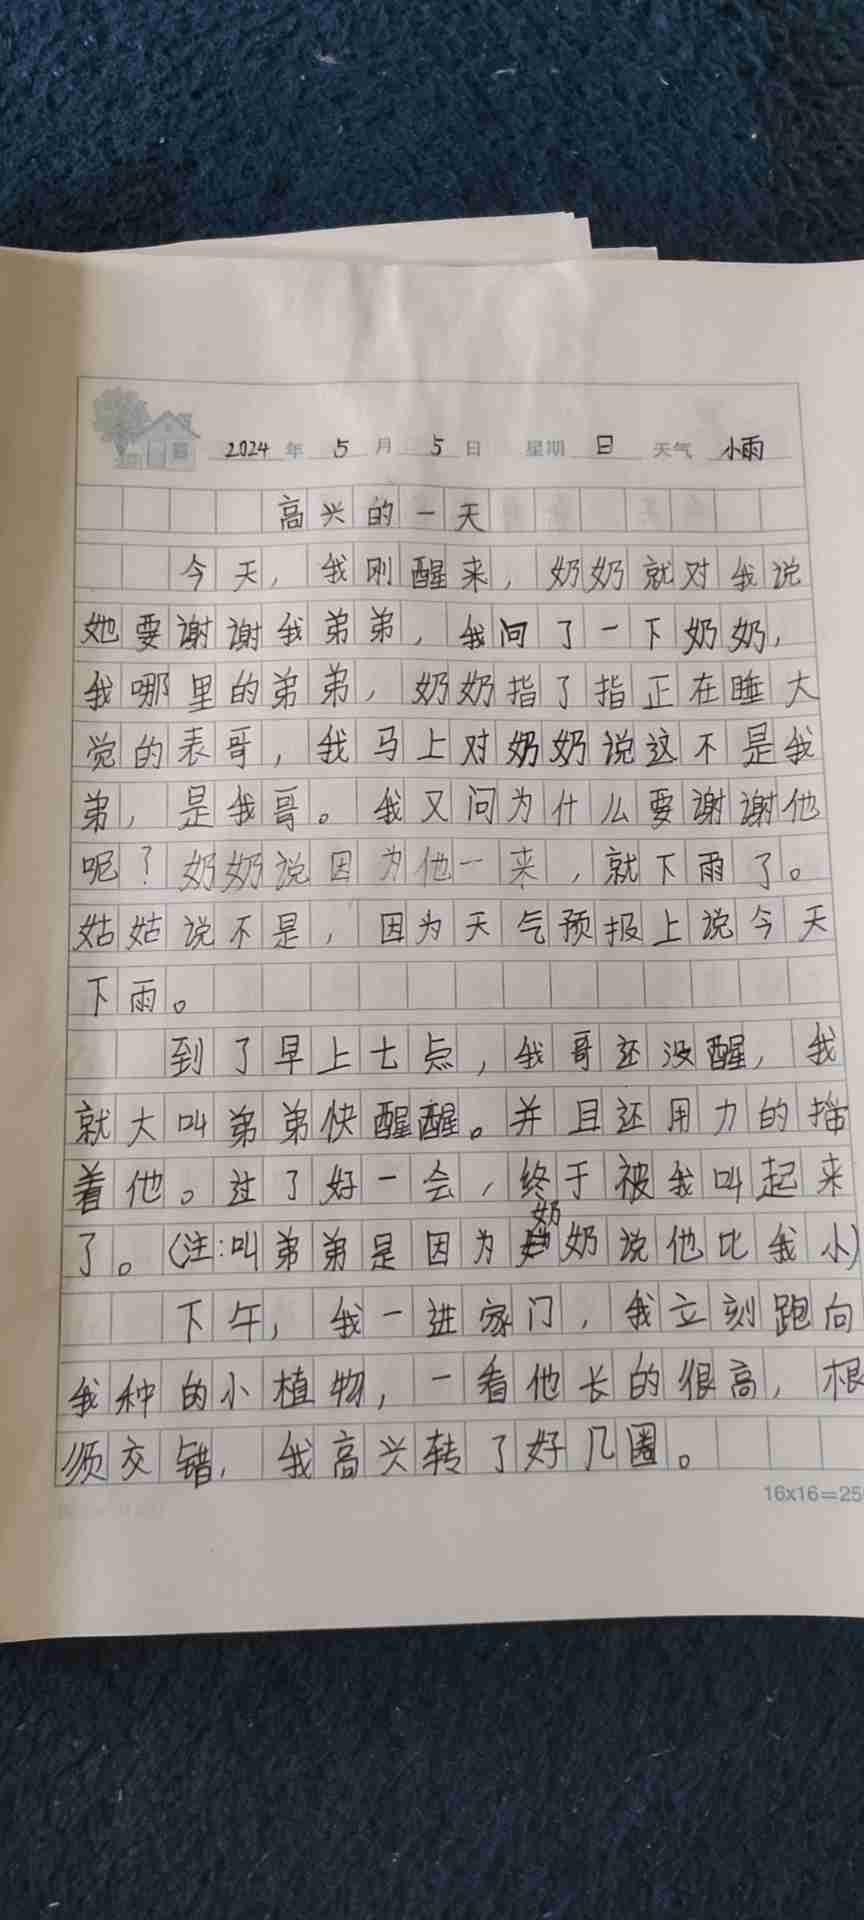 2024年5月5日 星期日 天气小雨
高兴的一天
今天，我刚醒来，奶奶就对我说
她要谢谢我弟弟，我问了一下奶奶，
我哪里的弟弟，奶奶指了指正在睡大
觉的表哥，我马上对奶奶说这不是我
弟，是我哥。我又问为什么要谢谢他
呢？奶奶说因为他一来，就下雨了。
姑姑说不是，因为天气预报上说今天
下雨。
到了早上七点，我哥还没醒，我
就大叫弟弟快醒醒。并且还用力的
着他。过了好一会，终于被我叫起来
了。（注：叫弟弟是因为奶奶说他比我小）
下午，我一进家门，我立刻跑向
我种的小植物，一看他长的很高，根
须交错，我高兴转了好几圈。
16x16=25